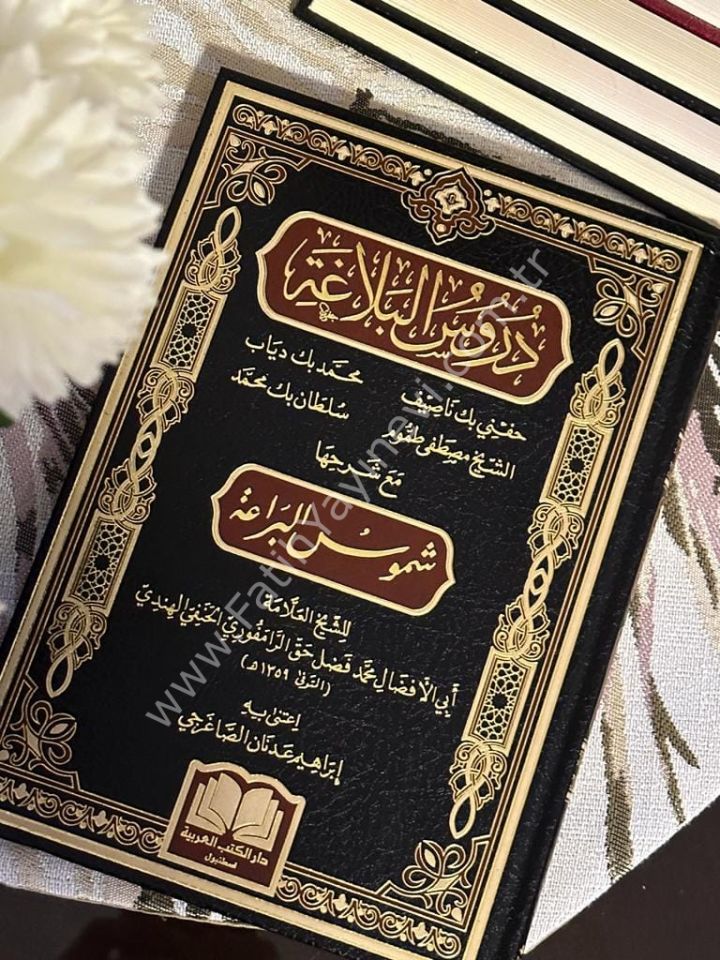 دُرُوسُ البَلَاغَةِ
حفني بك ناصيف محمد بك دياب
الشيخ مصطفى طموم سلطان بك محمد
مَعَ شَرحِهَا
شموسُ البَرَاعَة
للشيخ العلَّامة
أبي الأفضال محمد فضل حق الرامفوري الحنفي الهندي
(المتوفى ١٣٥٩ هـ)
اعتنى به
إبراهيم عدنان الصاغرجي
دار الكتب العربية
اسطنبول
www.FatihYayinevi.com.tr